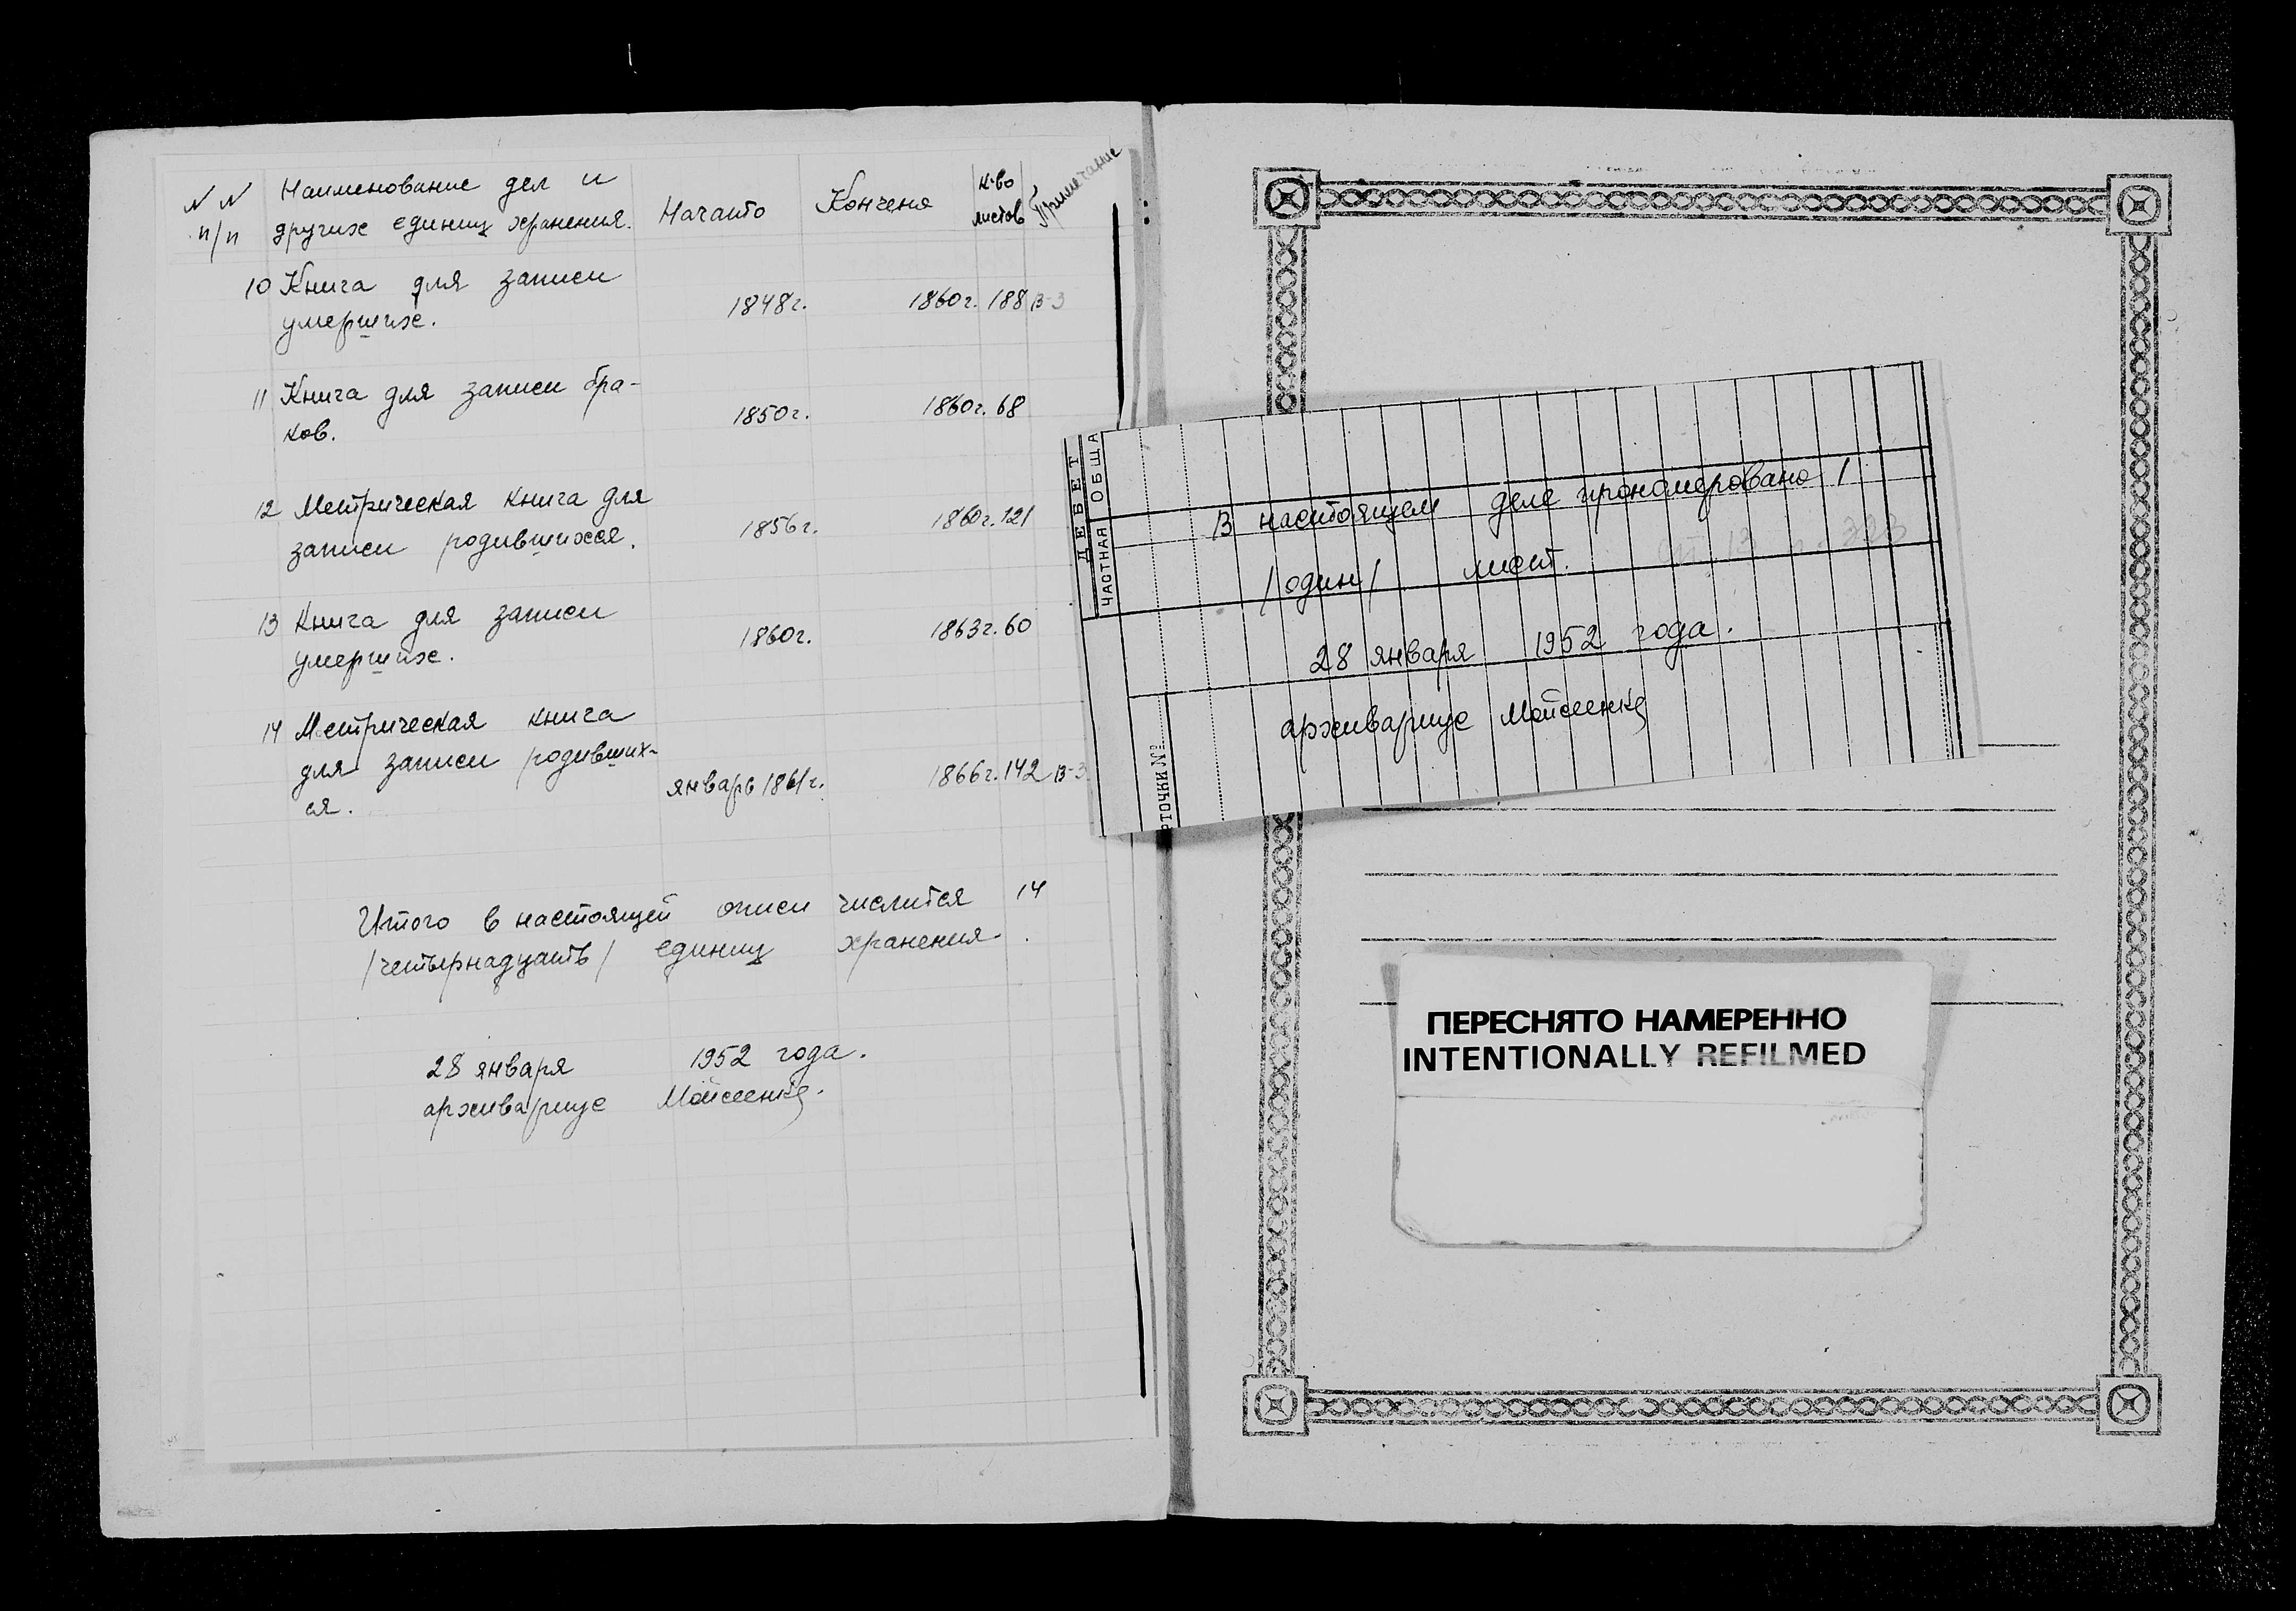 N N Наименование дел и Начато Кончено к-во Примечание
п/п других единиц хранения. листов
10 Книга для записи
умерших. 1848г. 1860г. 188 В-3
11 Книга для записи бра-
ков. 1850г. 1860г. 68
12 Метрическая книга для
записи родившихся. 1856г. 1860г. 121
13 Книга для записи
умерших. 1860г. 1863г. 60
14 Метрическая книга
для записи родивших-
ся. январь 1861г. 1866г. 142 В-3
Итого в настоящей описи числится 14
/четырнадцать/ единиц хранения.
28 января 1952 года.
архивариус Мойсеенко.
ДЕБЕТ
ЧАСТНАЯ ОБЩА
В настоящем деле прономеровано 1
/один/ лист.
28 января 1952 года.
архивариус Мойсеенко
РТОЧКИ №
ПЕРЕСНЯТО НАМЕРЕННО
INTENTIONALLY REFILMED